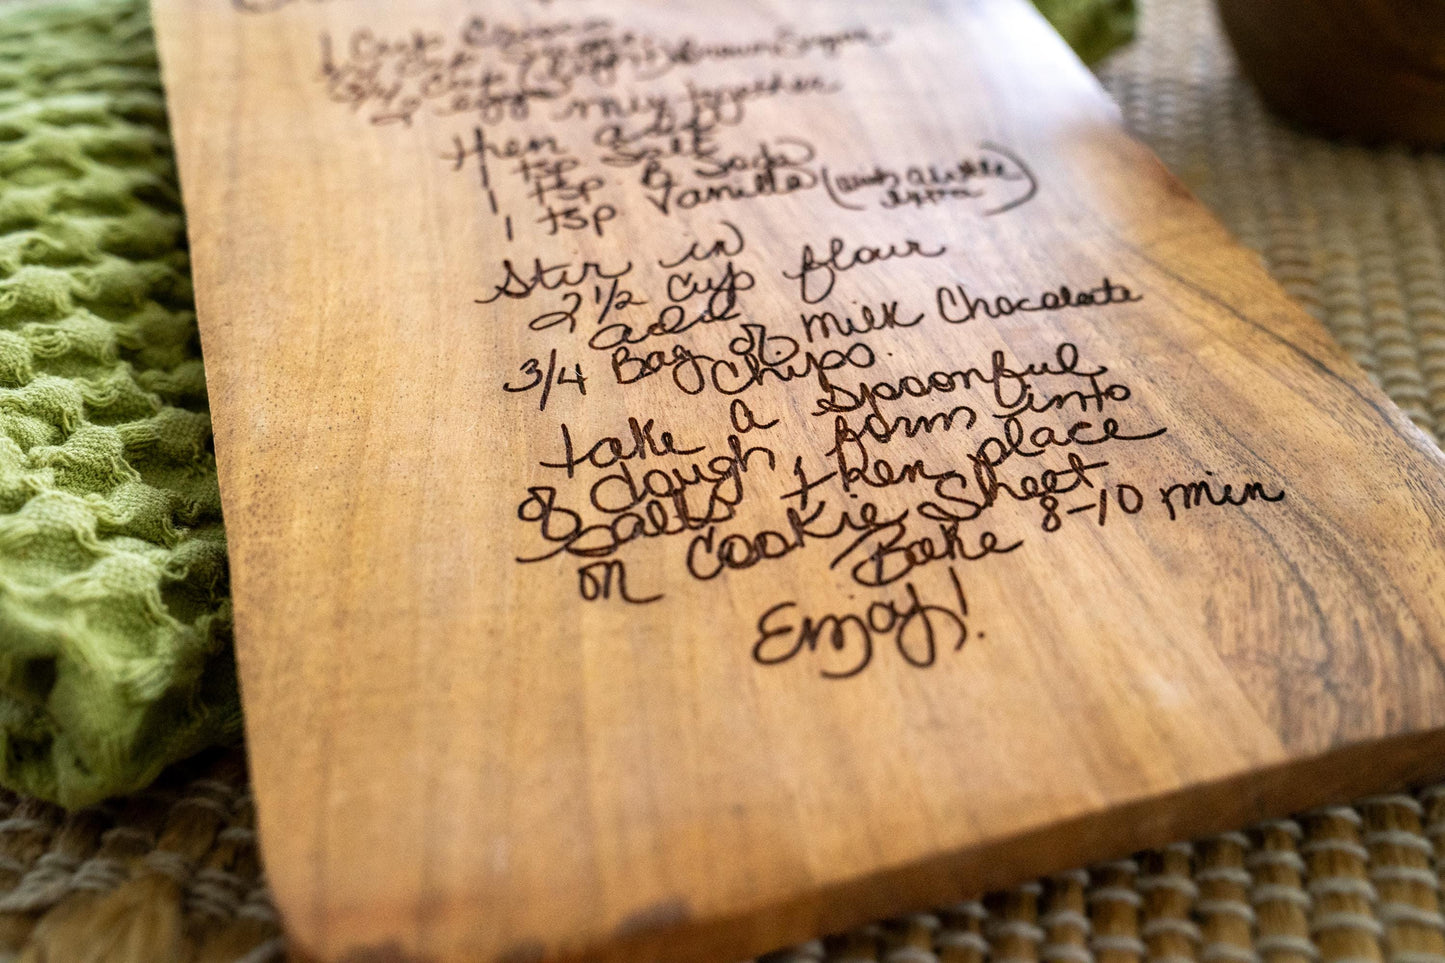 1 Cup
3/4 Cup Brown Sugar
2 eggs mix together
then add
1 tsp Salt
1 tsp B Soda
1 tsp Vanilla (and a little extra)
Stir in
2 1/2 Cup flour
add
3/4 Bag of Milk Chocolate
Chips.
take a spoonful
of dough, form into
balls then place
on Cookie Sheet
Bake 8-10 min
Enjoy!